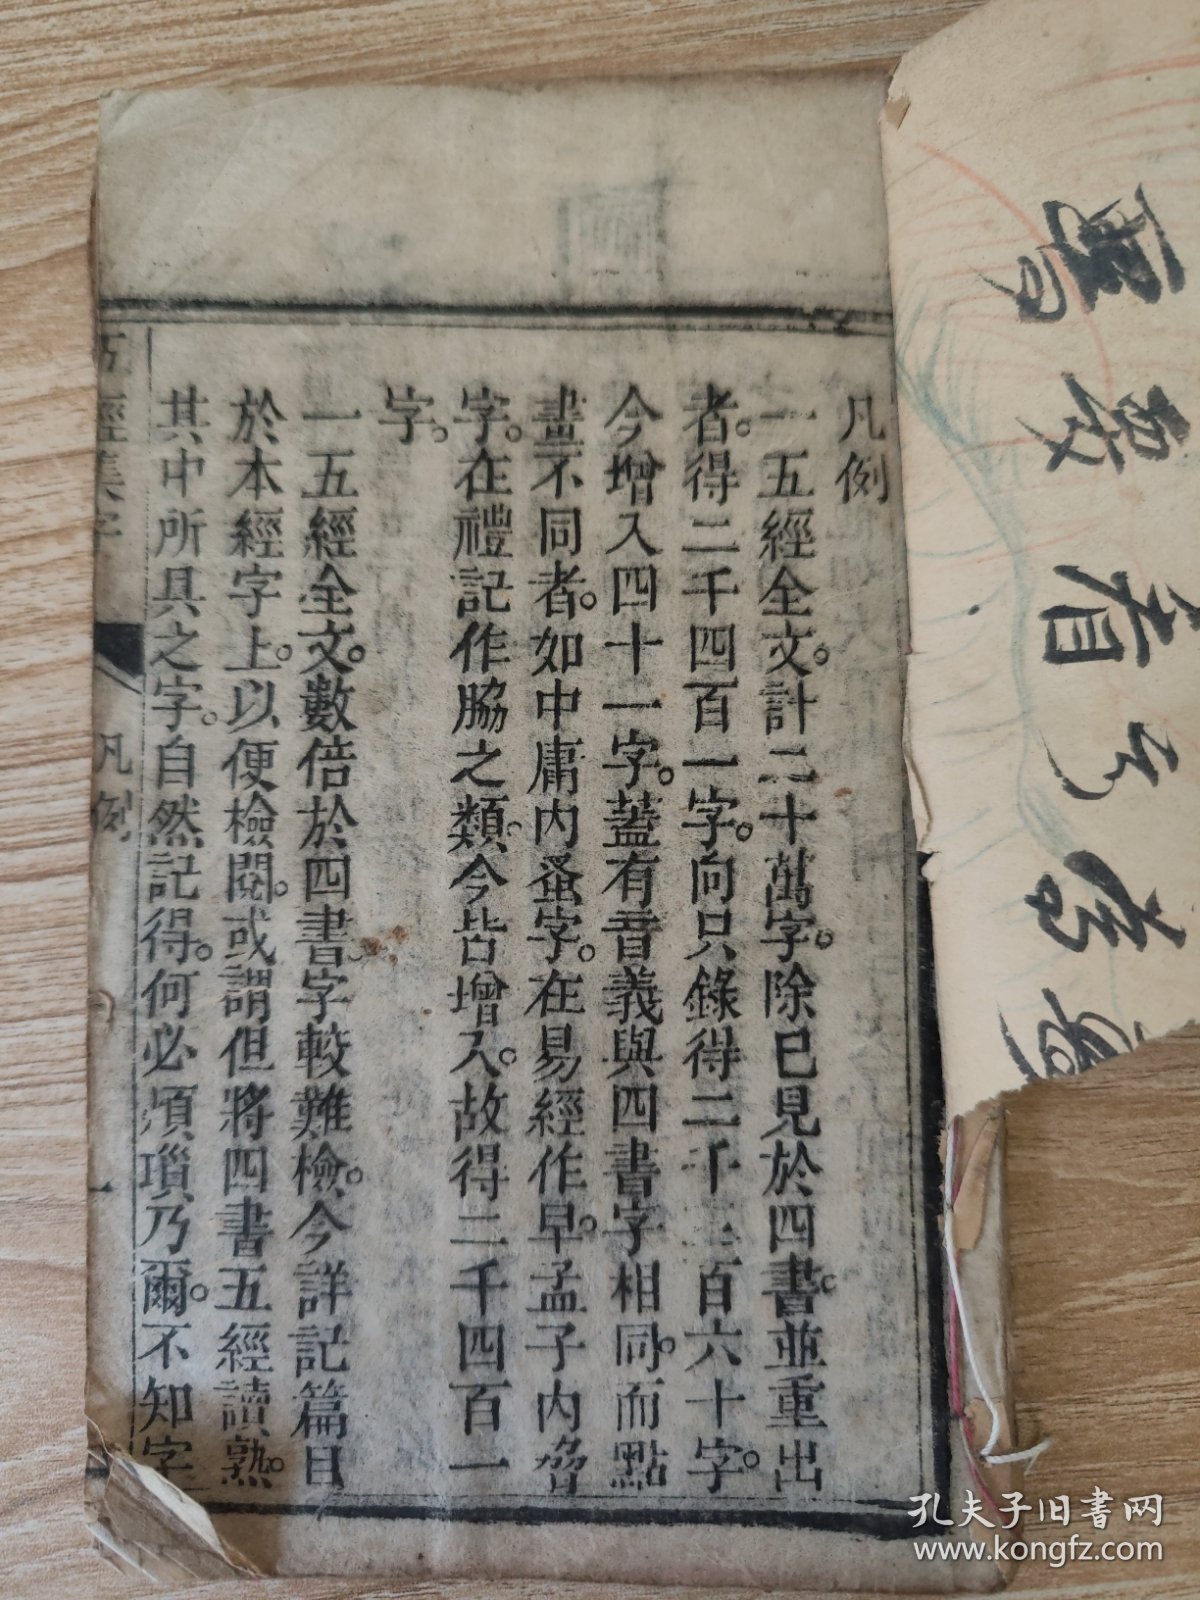 凡例
一五經全文。計二十萬字。除已見於四書。並重出
者。得二千四百一字。向只錄得二千三百六十字。
今增入四十一字。蓋有音義與四書字相同。而點
畫不同者。如中庸內蚤字。在易經作早。孟子內脅
字。在禮記作脇之類。今皆增入。故得二千四百一
字。
一五經全文。數倍於四書字較難檢。今詳記篇目
於本經字上。以便檢閱。或謂但將四書五經讀熟。
其中所具之字。自然記得。何必煩瑣乃爾。不知字
五經集字
凡例
一
孔夫子旧书网
www.kongfz.com